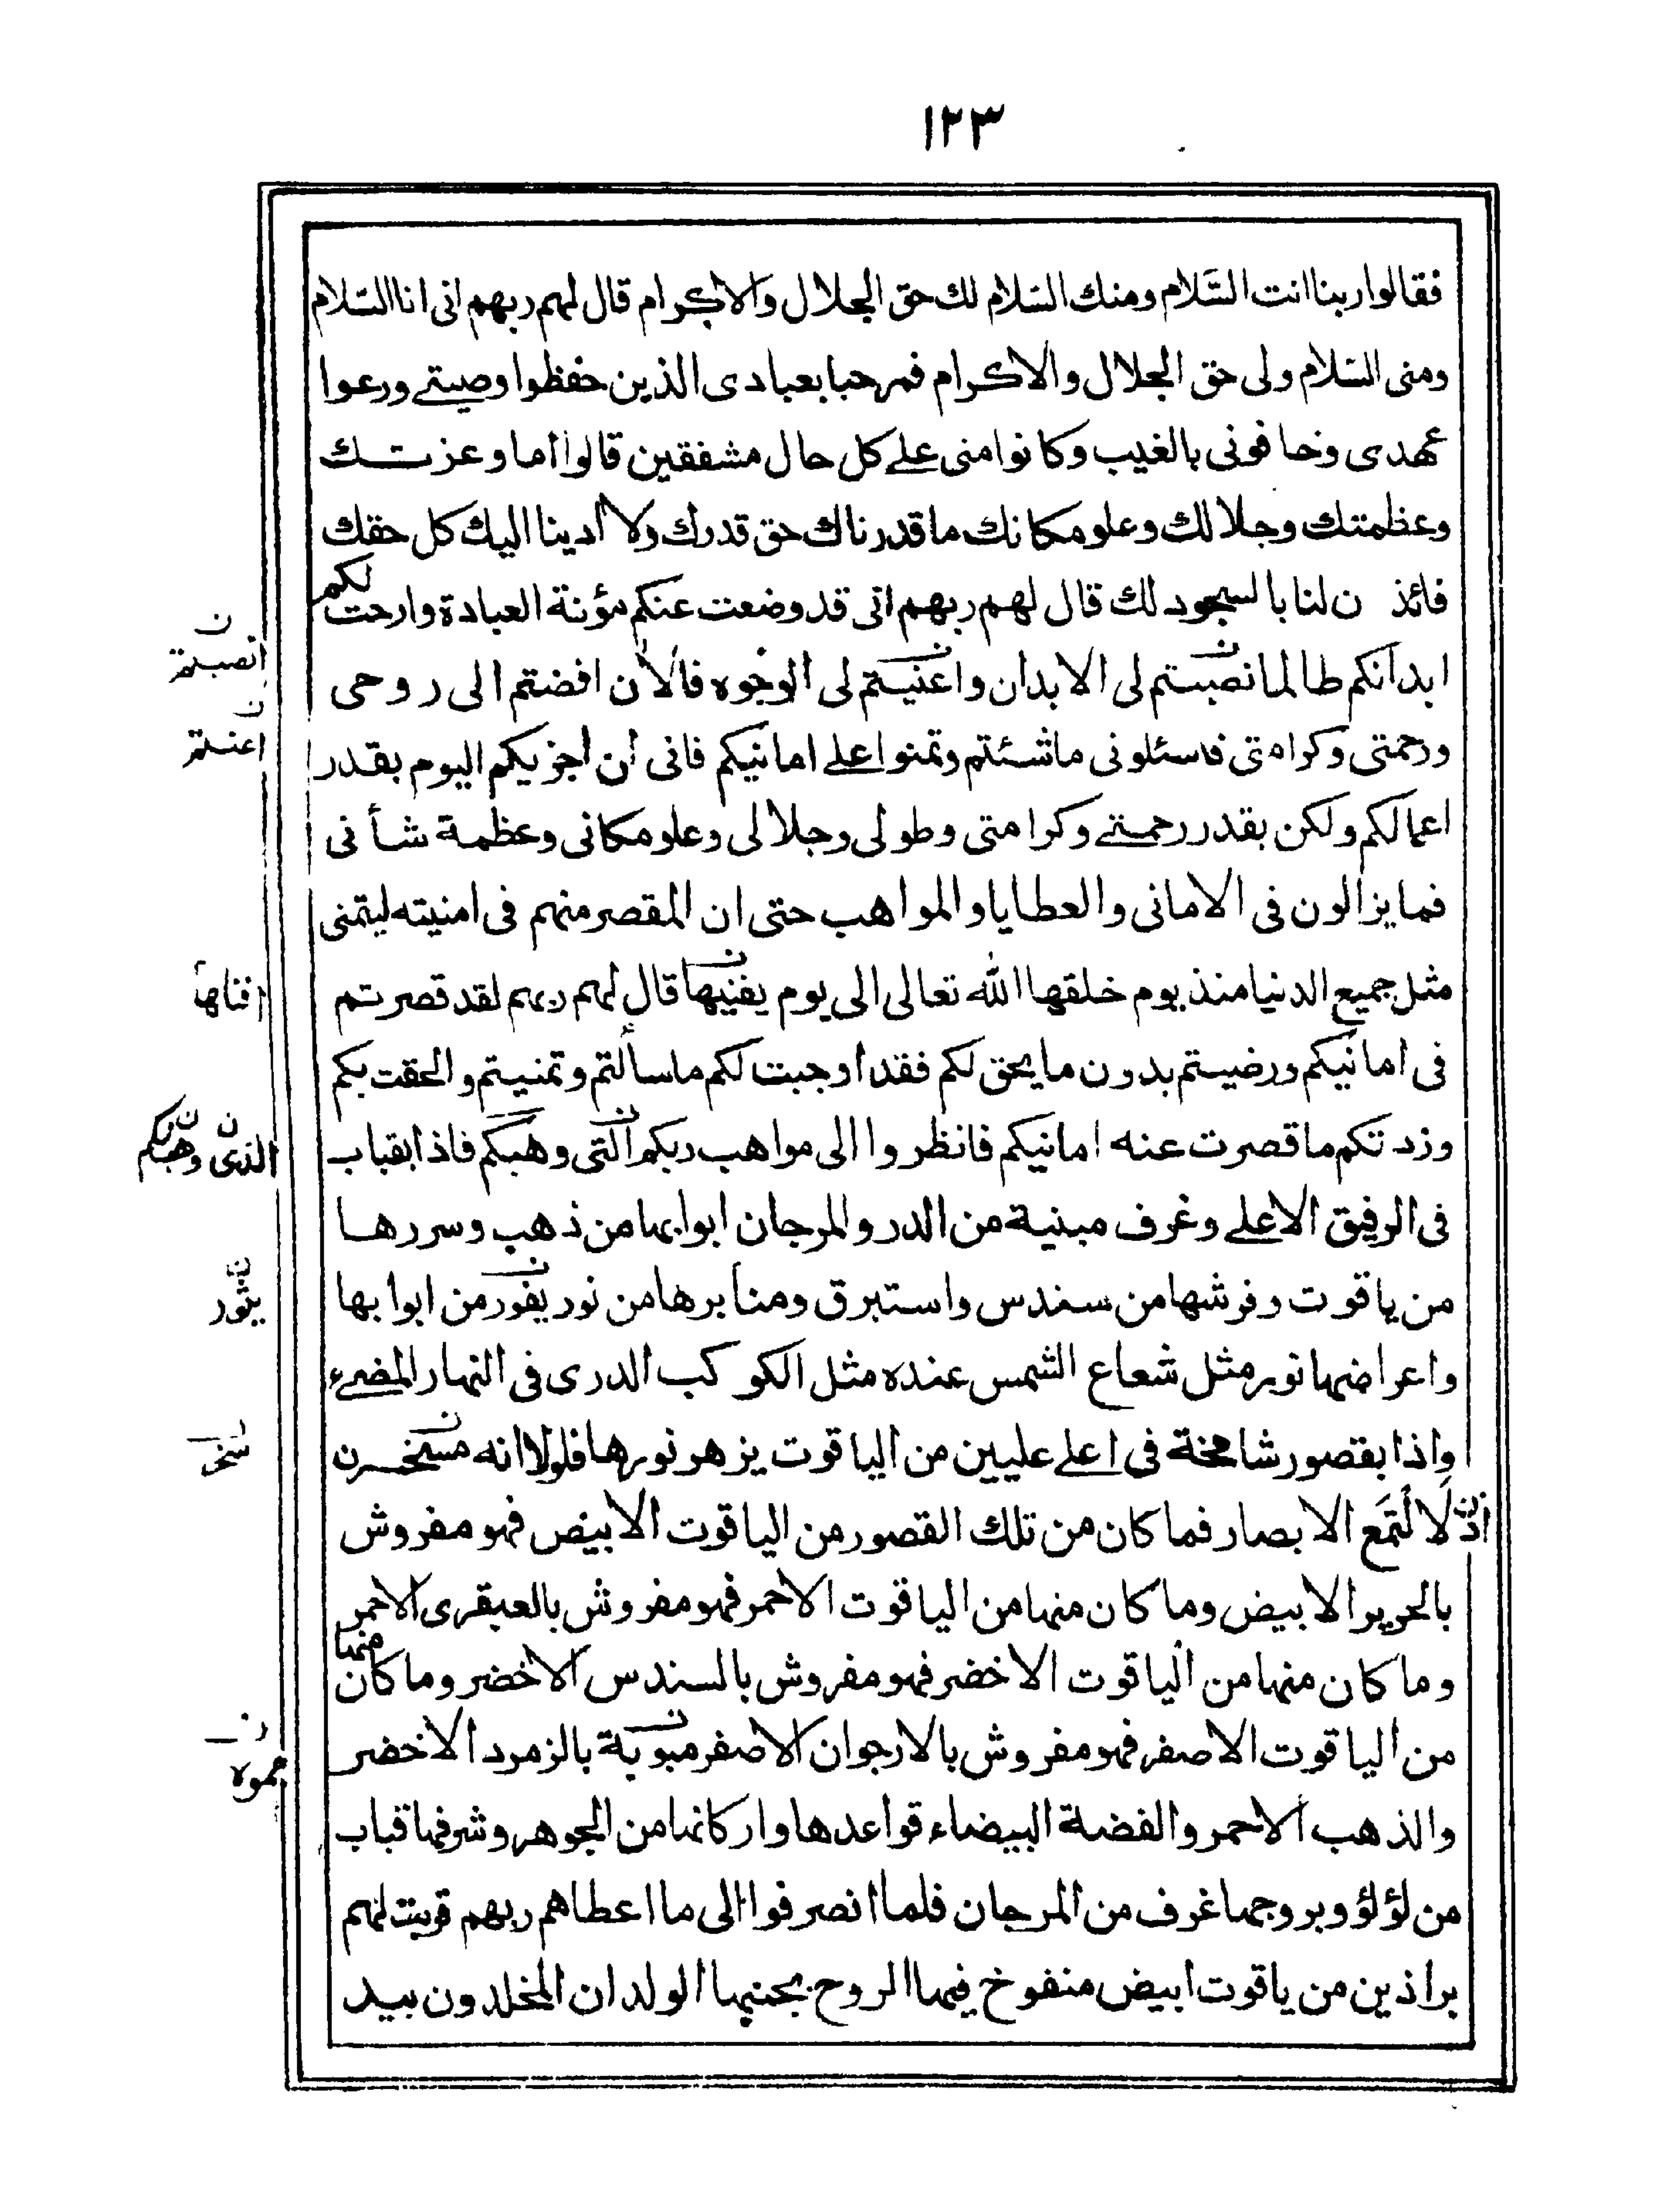 ١٢٣
فقالوا ربنا انت السَّلام ومنك السّلام لك حق الجلال والاكرام قال لهم ربهم انى انا السّلام
ومنى السّلام ولى حق الجلال والاكرام فمرحبا بعبادى الذين حفظوا وصيتى ورعوا
عهدى وخافونى بالغيب وكانوا منى على كل حال مشفقين قالوا أما وعزتك
وعظمتك وجلالك وعلو مكانك ما قدرناك حق قدرك ولا أدينا اليك كل حقك
فائذن لنا بالسجود لك قال لهم ربهم انى قد وضعت عنكم مؤنة العبادة وارحت لكم
ابدانكم طالما نصبتم لى الابدان واعنيتم لى الوجوه فالأن افضتم الى روحى
ن انصبتم
ن اعنتم
ورحمتى وكرامتى فاسئلونى ما شئتم وتمنوا على امانيكم فانى لن أجزيكم اليوم بقدر
اعمالكم ولكن بقدر رحمتى وكرامتى وطولى وجلالى وعلو مكانى وعظمة شأنى
فما يزالون فى الامانى والعطايا والمواهب حتى ان المقصر منهم فى امنيته ليتمنى
مثل جميع الدنيا منذ يوم خلقها اللّٰه تعالى الى يوم يفنيها قال لهم ربهم لقد قصرتم
افناها
فى امانيكم ورضيتم بدون ما يحق لكم فقد اوجبت لكم ما سألتم وتمنيتم والحقت بكم
وزدتكم ما قصرت عنه امانيكم فانظروا الى مواهب ربكم التى وهبكم فاذا بقباب
ن الذى ن وهبلكم
فى الرفيق الاعلى وغرف مبنية من الدر والمرجان ابوابها من ذهب وسررها
من ياقوت وفرشها من سندس واستبرق ومنابرها من نور يفور من ابوابها
ن يثور
واعراضها نور مثل شعاع الشمس عنده مثل الكوكب الدرى فى النهار المضىء
واذا بقصور شامخة فى اعلى عليين من الياقوت يزهر نورها فلولا انه مسخر ن
سخر
اذن لَالْتَمَع الابصار فما كان من تلك القصور من الياقوت الابيض فهو مفروش
بالحرير الابيض وما كان منها من الياقوت الاحمر فهو مفروش بالعبقرى الاحمر
وما كان منها من الياقوت الاخضر فهو مفروش بالسندس الاخضر وما كان منها
من الياقوت الاصفر فهو مفروش بالارجوان الاصفر مبوبة بالزمرد الاخضر
ن مموه
والذهب الاحمر والفضة البيضاء قواعدها واركانها من الجوهر وشرفها قباب
من لؤلؤ وبروجها غرف من المرجان فلما انصرفوا الى ما اعطاهم ربهم قربت لهم
براذين من ياقوت ابيض منفوخ فيها الروح بجنبها الولدان المخلدون بيد